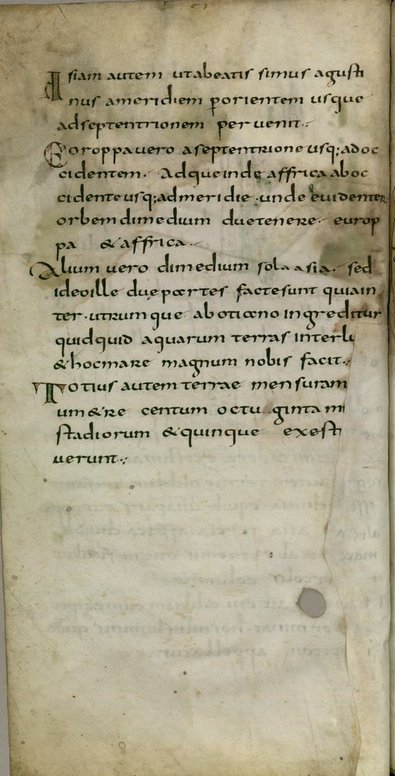 Isiam autem ut abeatis simus agusti
nus ameridiem porientem usque
adseptentrionem peruenit.
Eoroppa uero aseptentrione usq; ad oc
cidentem. Adqueinde affrica aboc
cidente usq; ad meridie. unde euidenter
orbem dimedium due tenere. europ
pa & affrica.
Alium uero dimedium sola asia. sed
ideo ille due partes facte sunt quia in
ter utrumque ab oticeno ingreditur
quidquid aquarum terras interlu
& hoc mare magnum nobis facit.
Totius autem terrae mensuram
um&re centum octuginta mi
stadiorum & quinque exesti
uerunt.